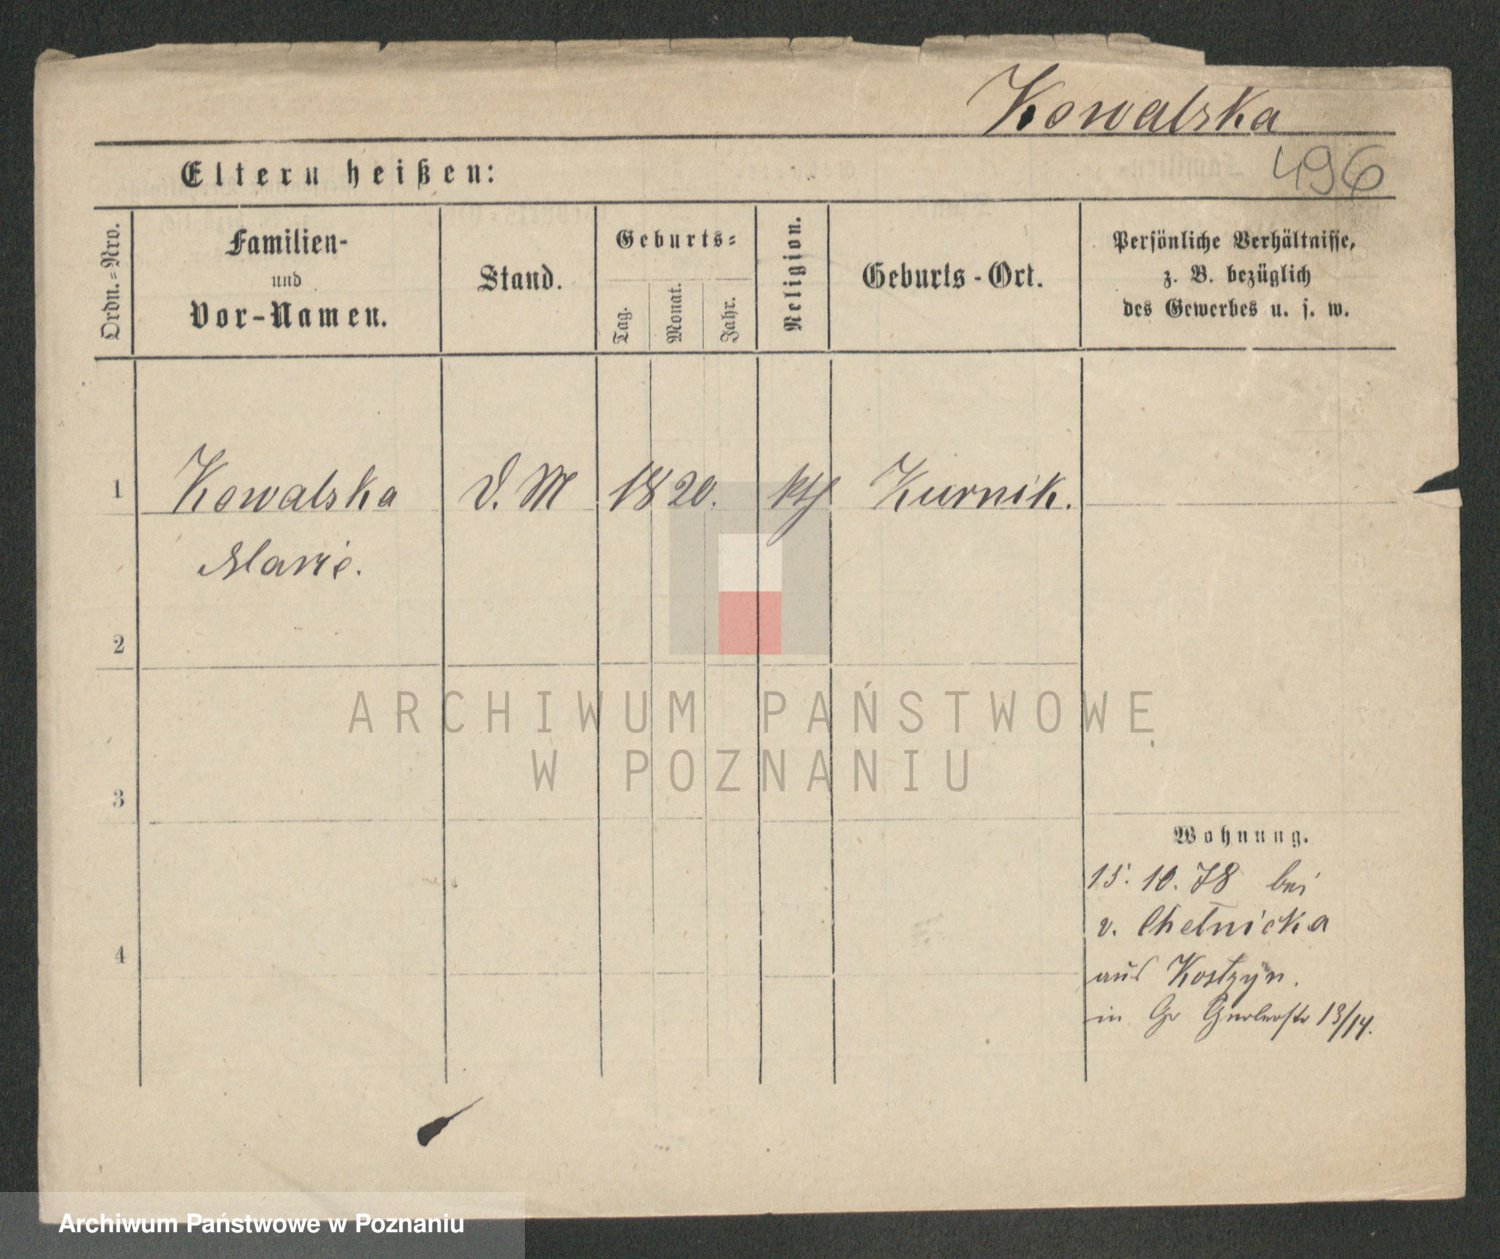 Kowalska
496
Eltern heißen:
Ordn.=Nro.
Familien-
und
Vor-Namen.
Stand.
Geburts=
Tag.
Monat.
Jahr.
Religion.
Geburts-Ort.
Persönliche Verhältnisse,
z. B. bezüglich
des Gewerbes u. s. w.
1 Kowalska D. M 1820. kth Kurnik.
Marie.
2
3
4
Wohnung.
15. 10. 78 bei
v. Chełnicka
aus Kostzyn.
in Gr Gerberstr 13/14.
ARCHIWUM PAŃSTWOWE
W POZNANIU
Archiwum Państwowe w Poznaniu